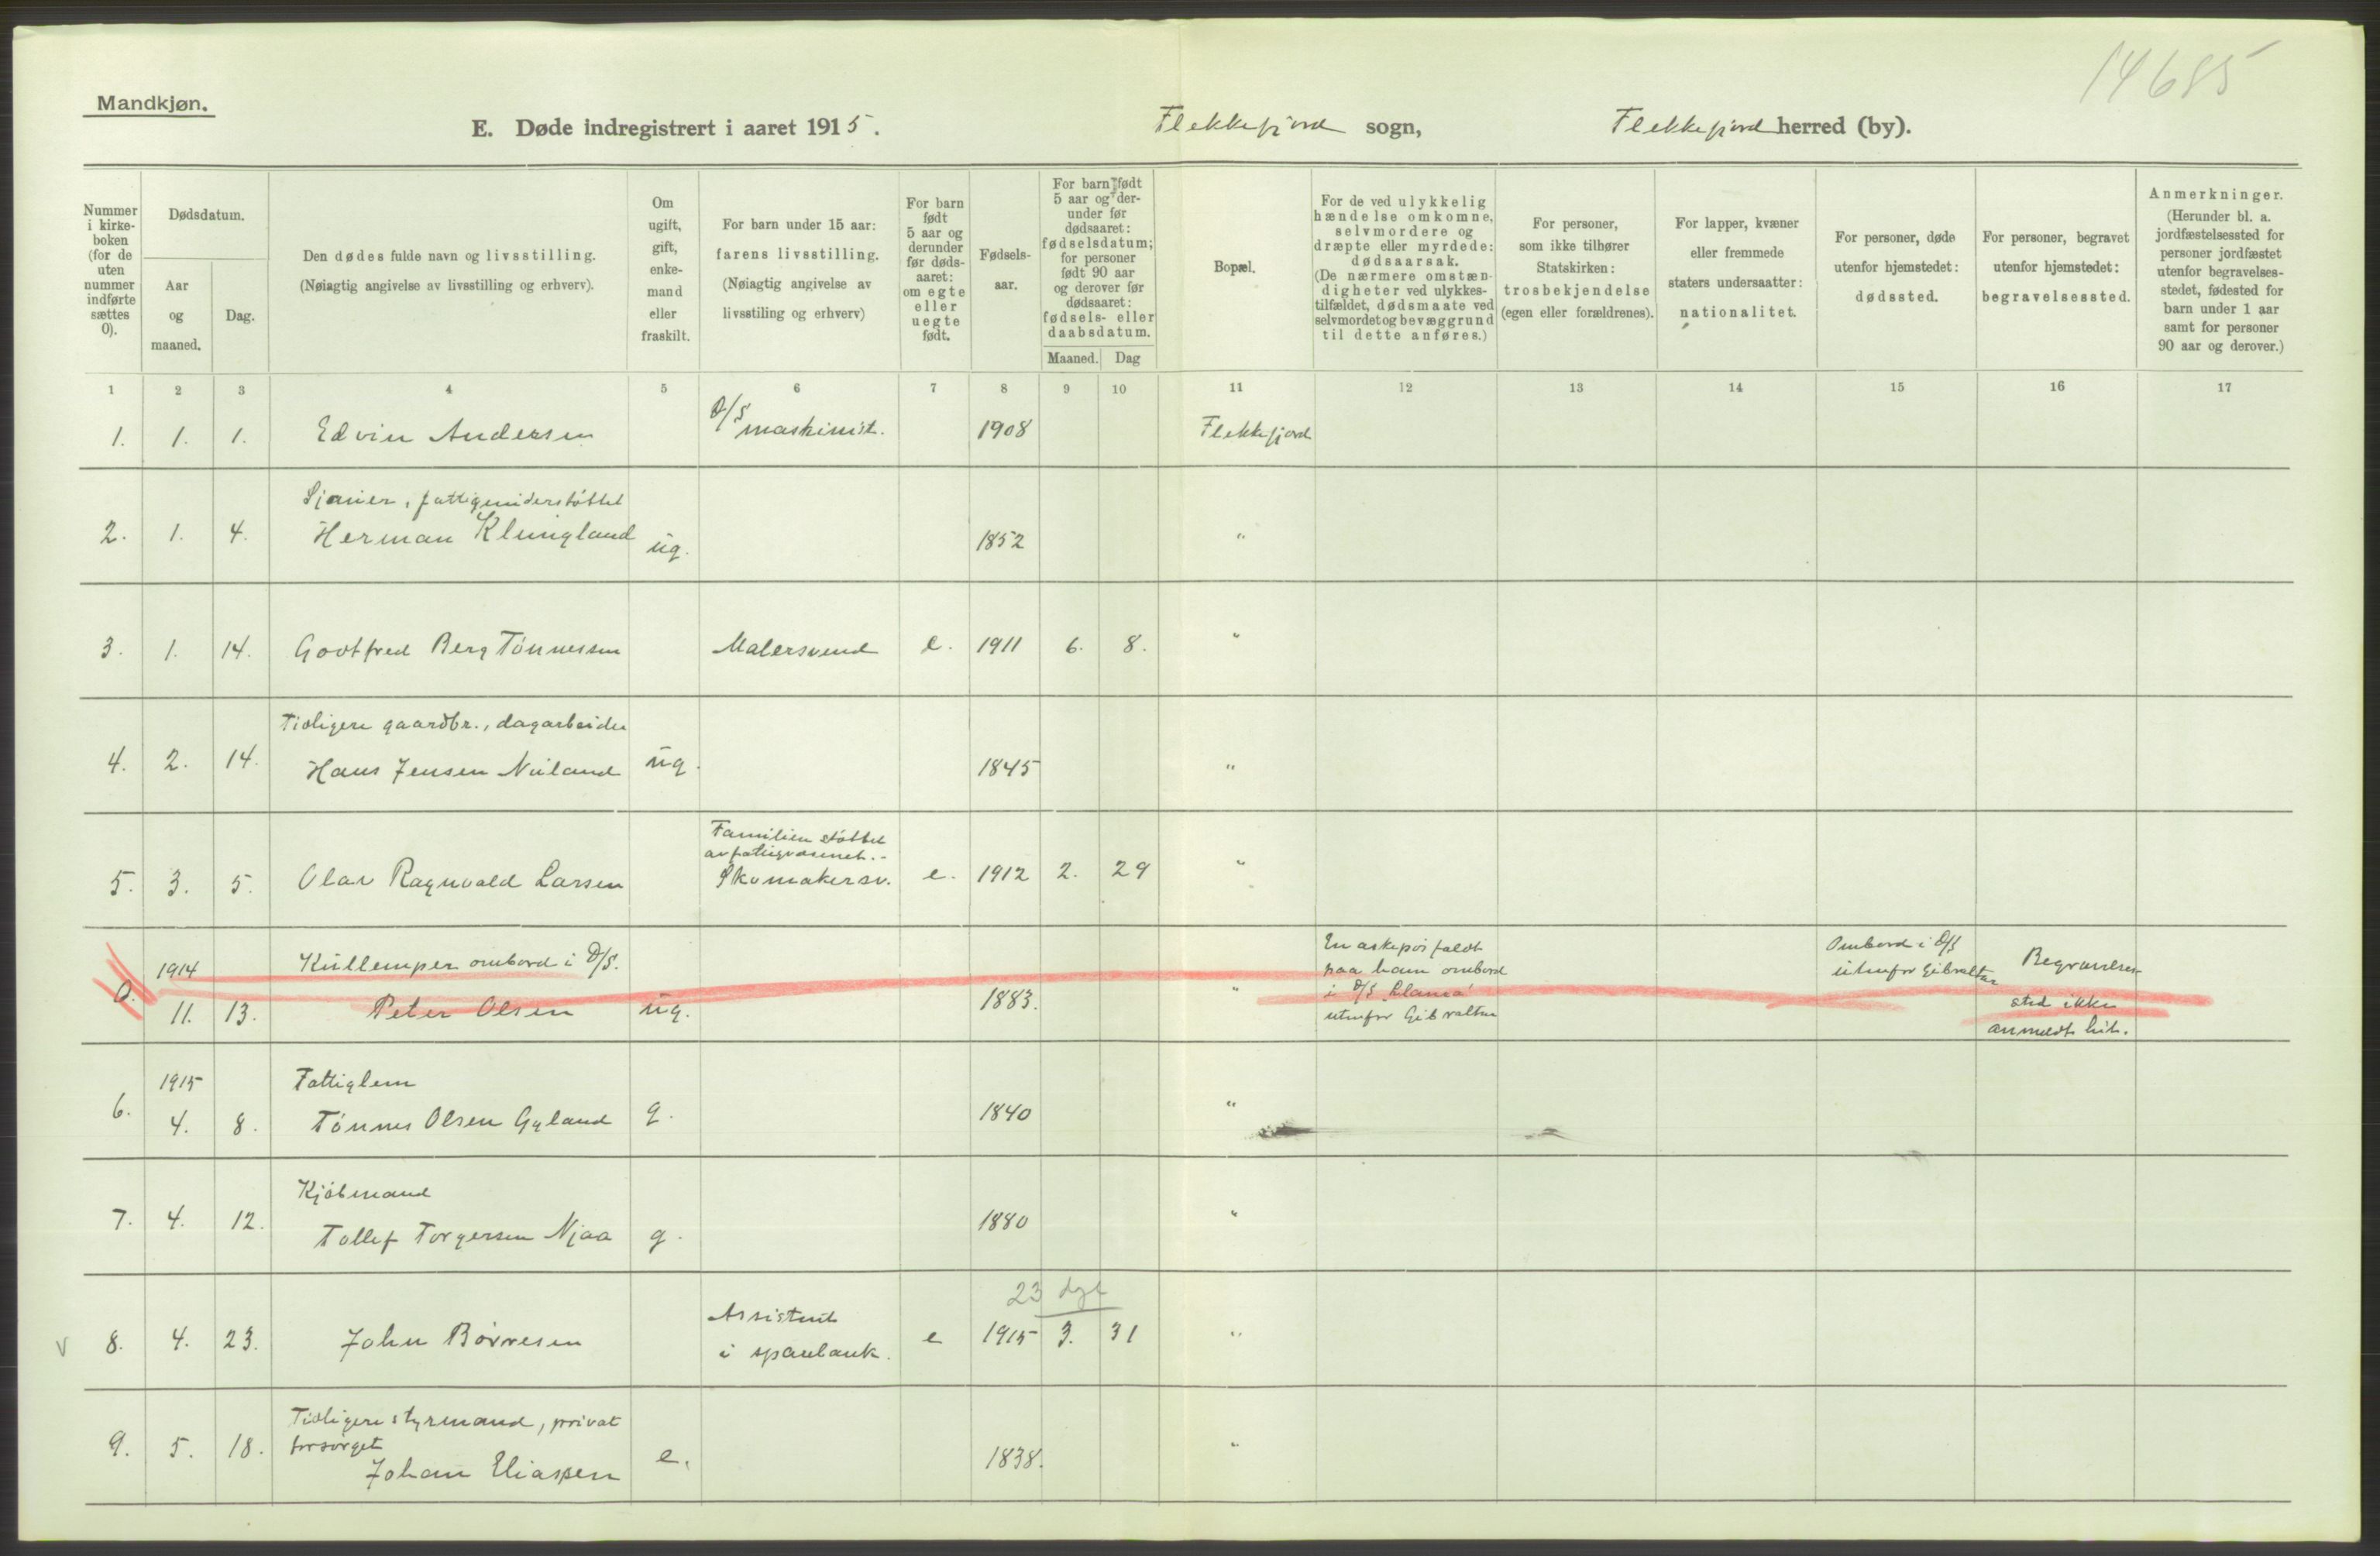 14685
Mandkjøn.
E. Døde indregistrert i aaret 1915. Flekkefjord sogn, Flekkefjord herred (by).
Nummer i kirke-boken (for de uten nummer indførte sættes 0).
Dødsdatum.
Aar og maaned.
Dag.
Den dødes fulde navn og livsstilling.
(Nøiagtig angivelse av livsstilling og erhverv).
Om ugift, gift, enke-mand eller fraskilt.
For barn under 15 aar:
farens livsstilling.
(Nøiagtig angivelse av
livsstiling og erhverv)
For barn født 5 aar og derunder før døds-aaret: om egte eller uegte født.
Fødsels-aar.
For barn født 5 aar og der-under før dødsaaret: fødselsdatum; for personer født 90 aar og derover før dødsaaret: fødsels- eller daabsdatum.
Maaned. Dag
Bopæl.
For de ved ulykkelig hændelse omkomne, selvmordere og dræpte eller myrdede: dødsaarsak.
(De nærmere omstæn-digheter ved ulykkes-tilfældet, dødsmaate ved selvmordet og bevæggrund til dette anføres.)
For personer, som ikke tilhører Statskirken: trosbekjendelse (egen eller forældrenes).
For lapper, kvæner eller fremmede staters undersaatter: nationalitet.
For personer, døde utenfor hjemstedet: dødssted.
For personer, begravet utenfor hjemstedet: begravelsessted.
Anmerkninger.
(Herunder bl. a. jordfæstelsessted for personer jordfæstet utenfor begravelses-stedet, fødested for barn under 1 aar samt for personer 90 aar og derover.)
1 2 3 4 5 6 7 8 9 10 11 12 13 14 15 16 17
D/S
1. 1. 1. Edvin Andersen maskinist. 1908 Flekkefjord
Sjauer, fattigunderstøttet
2. 1. 4. Herman Klungland ug. 1852 "
3. 1. 14. Godtfred Berg Tønnessen Malersvend e. 1911 6. 8. "
Tidligere gaardbr., dagarbeider
4. 2. 14. Hans Jensen Nuland ug. 1845 "
Familien støttet
av fattigvæsenet.-
5. 3. 5. Olav Ragnvald Larsen Skomakersv. e. 1912 2. 29 "
1914 Kullemper ombord i D/S. En askepøs faldt Ombord i D/S
paa ham ombord utenfor Gibraltar Begravelses-
0. 11. 13. Peter Olsen ug. 1883. " i D/S sted ikke
utenfor Gibraltar anmeldt hit.
1915 Fattiglem
6. 4. 8. Tønnes Olsen Gyland g. 1840 "
Kjøbmand
7. 4. 12. Tollef Torgersen Njaa g. 1880 "
23 dgr
Assistent
8. 4. 23. John Børresen i sparebank. e 1915 3. 31 "
V
Tidligere styrmand, privat
forsørget
9. 5. 18. Johan Eliassen e. 1838. "